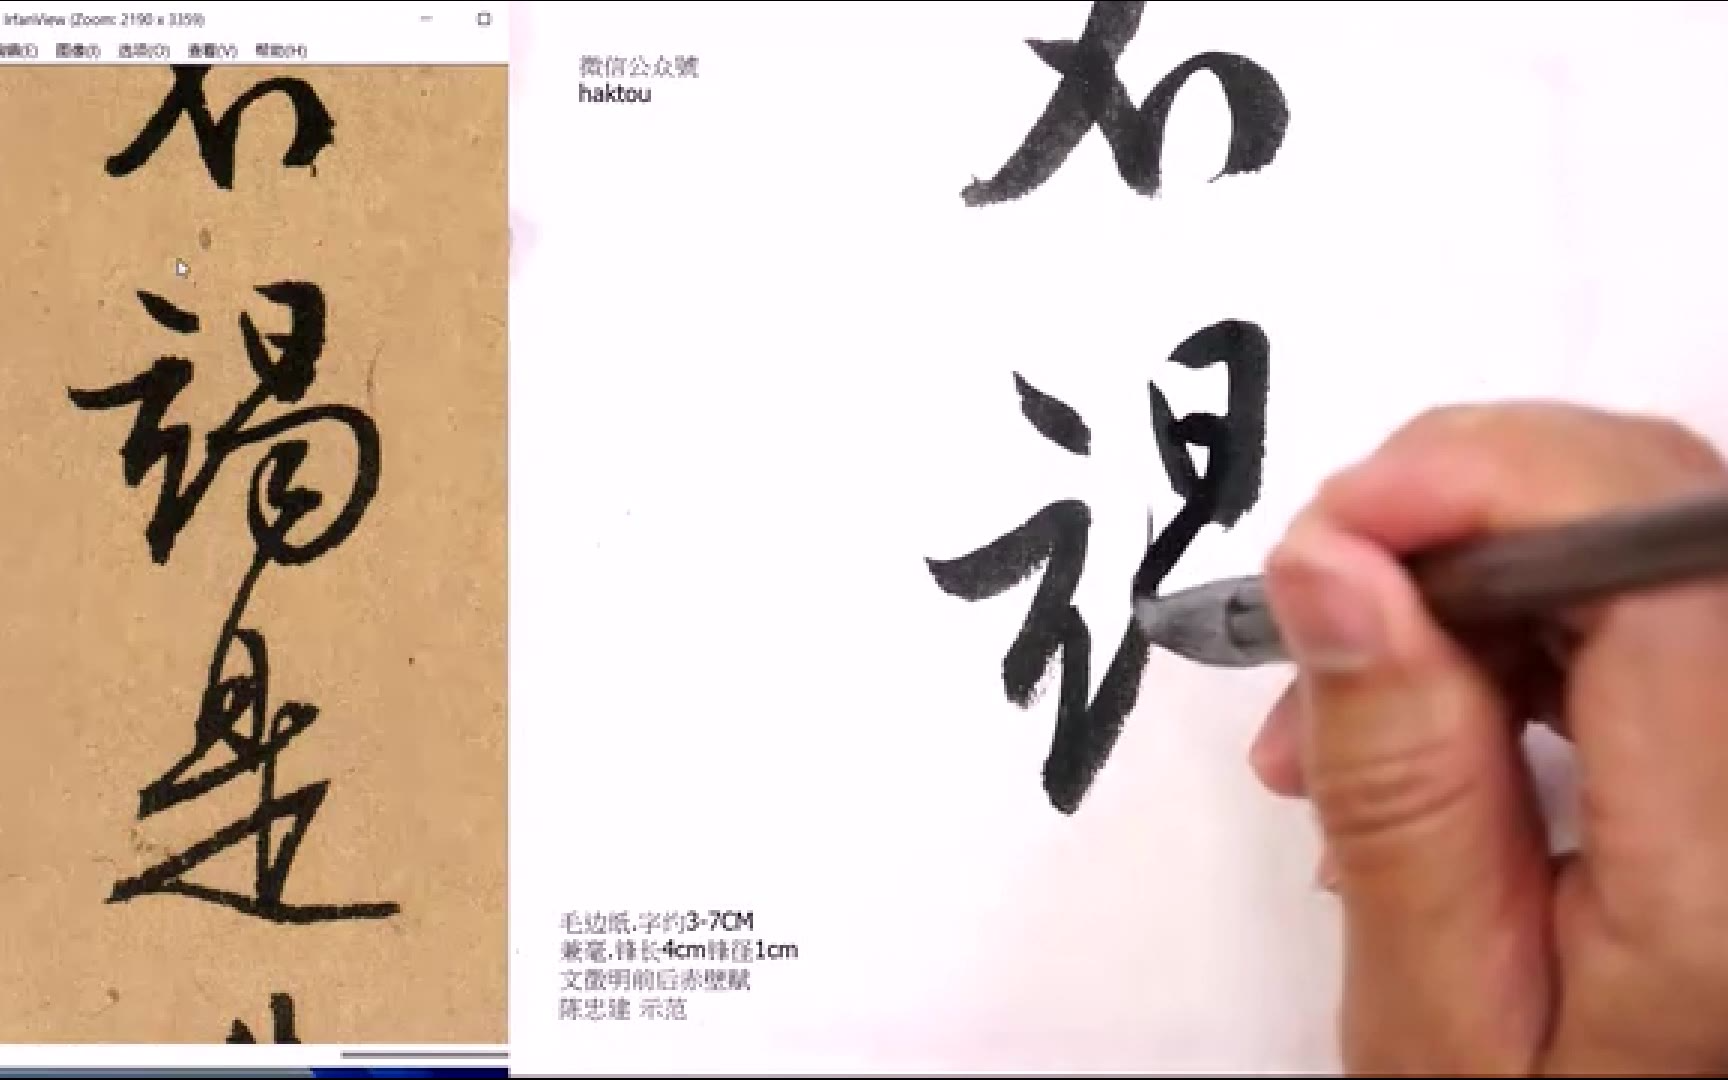 IrfanView (Zoom: 2190 x 3359)
图像(I) 选项(O) 查看(V) 帮助(H)
不
竭
是
微信公众號
haktou
不
毛边纸.字约3-7CM
兼毫.锋长4cm锋径1cm
文徵明前后赤壁赋
陈忠建 示范